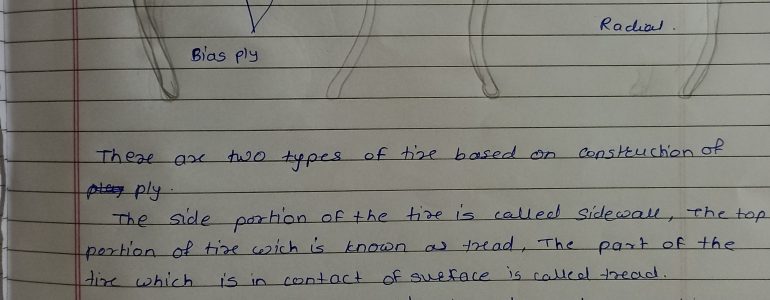 Radial.
Bias ply
There are two types of tire based on construction of
ply.
The side portion of the tire is called sidewall, the top
portion of tire wich is known as tread, The part of the
tire which is in contact of surface is called tread.